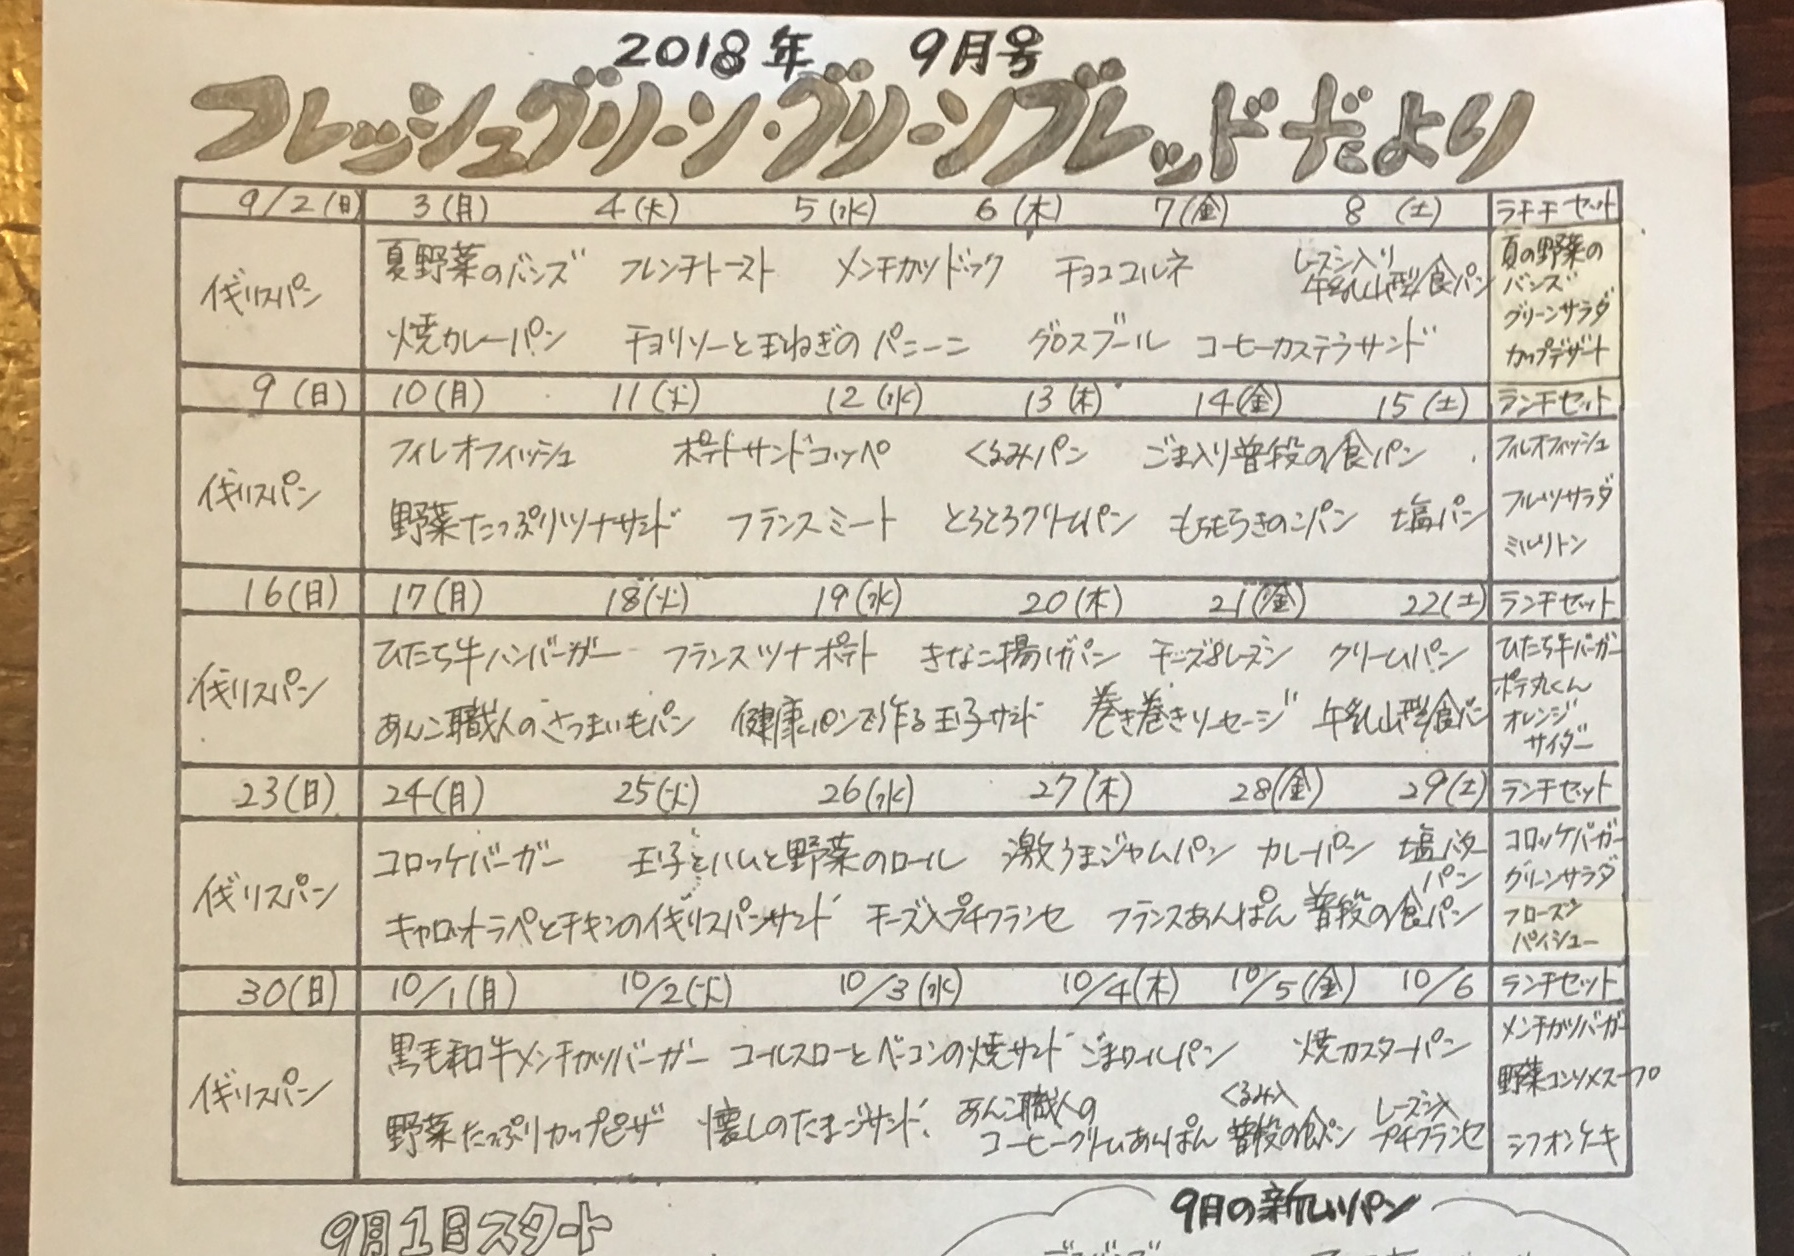 2018年 9月号
フレッシュグリーン・グリーンブレッドだより
9/2(日) 3(月) 4(火) 5(水) 6(木) 7(金) 8(土) ランチセット
イギリスパン
夏野菜のバンズ フレンチトースト メンチカツドック チョココルネ レーズン入り牛乳山型食パン
焼カレーパン チョリソーと玉ねぎのパニーニ グロスブール コーヒーカステラサンド
夏の野菜の
バンズ
グリーンサラダ
カップデザート
9(日) 10(月) 11(火) 12(水) 13(木) 14(金) 15(土) ランチセット
イギリスパン
フィレオフィッシュ ポテトサンドコッペ くるみパン ごま入り普段の食パン
野菜たっぷりツナサンド フランスミート とろとろクリームパン もちもちきのこパン 塩パン
フィレオフィッシュ
フルーツサラダ
ミルリトン
16(日) 17(月) 18(火) 19(水) 20(木) 21(金) 22(土) ランチセット
イギリスパン
ひたち牛ハンバーガー フランスツナポテト きなこ揚げパン チーズ&レーズン クリームパン
あんこ職人のさつまいもパン 健康パンで作る玉子サンド 巻き巻きソーセージ 牛乳山型食パン
ひたち牛バーガー
ポテ丸くん
オレンジ
サイダー
23(日) 24(月) 25(火) 26(水) 27(木) 28(金) 29(土) ランチセット
イギリスパン
コロッケバーガー 玉子とハムと野菜のロール 激うまジャムパン カレーパン 塩バターパン
キャロットラペとチキンのイギリスパンサンド チーズ入プチフランセ フランスあんぱん 普段の食パン
コロッケバーガー
グリーンサラダ
フローズン
パイシュー
30(日) 10/1(月) 10/2(火) 10/3(水) 10/4(木) 10/5(金) 10/6 ランチセット
イギリスパン
黒毛和牛メンチカツバーガー コールスローとベーコンの焼サンド ごまロールパン 焼カスターパン
野菜たっぷりカップピザ 懐しのたまごサンド あんこ職人のコーヒークリームあんぱん くるみ入普段の食パン レーズン入プチフランセ
メンチカツバーガー
野菜コンソメスープ
シフォンケーキ
9月1日スタート
9月の新しいパン